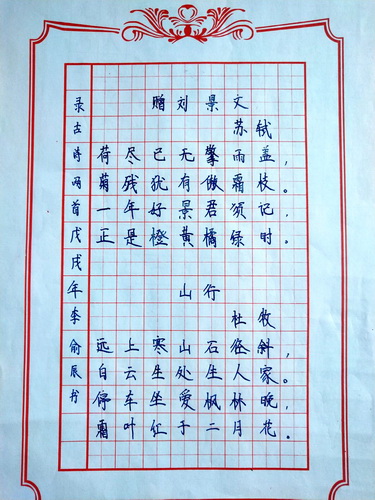 赠刘景文
苏轼
荷尽已无擎雨盖，
菊残犹有傲霜枝。
一年好景君须记，
正是橙黄橘绿时。
山行
杜牧
远上寒山石径斜，
白云生处生人家。
停车坐爱枫林晚，
霜叶红于二月花。
录古诗两首戊戌年李俞辰书